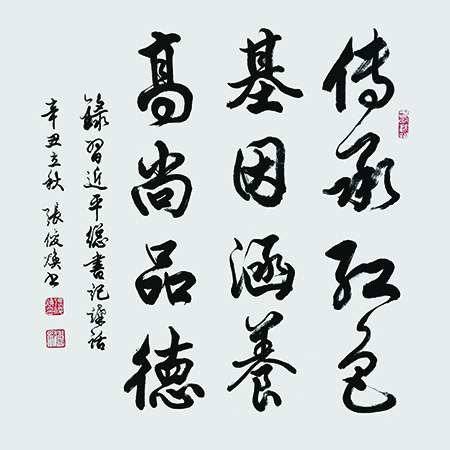 传承红色
基因涵養
高尚品德
錄習近平總書記講話
辛丑立秋 張俊